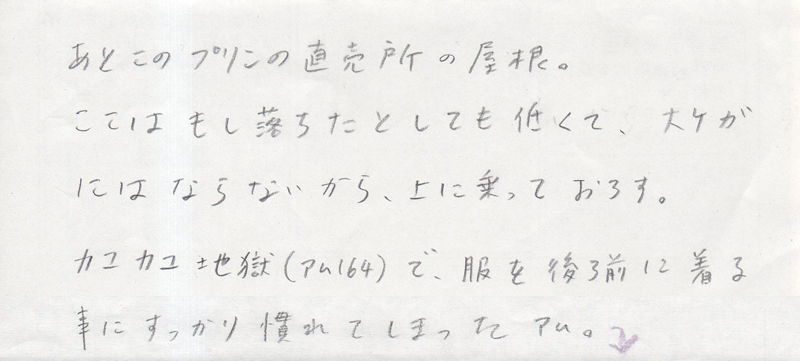 あとこのプリンの直売所の屋根。
ここはもし落ちたとしても低くて、大ケガ
にはならないから、上に乗っておろす。
カユカユ地獄(アム164)で、服を後ろ前に着る
事にすっかり慣れてしまったアム。